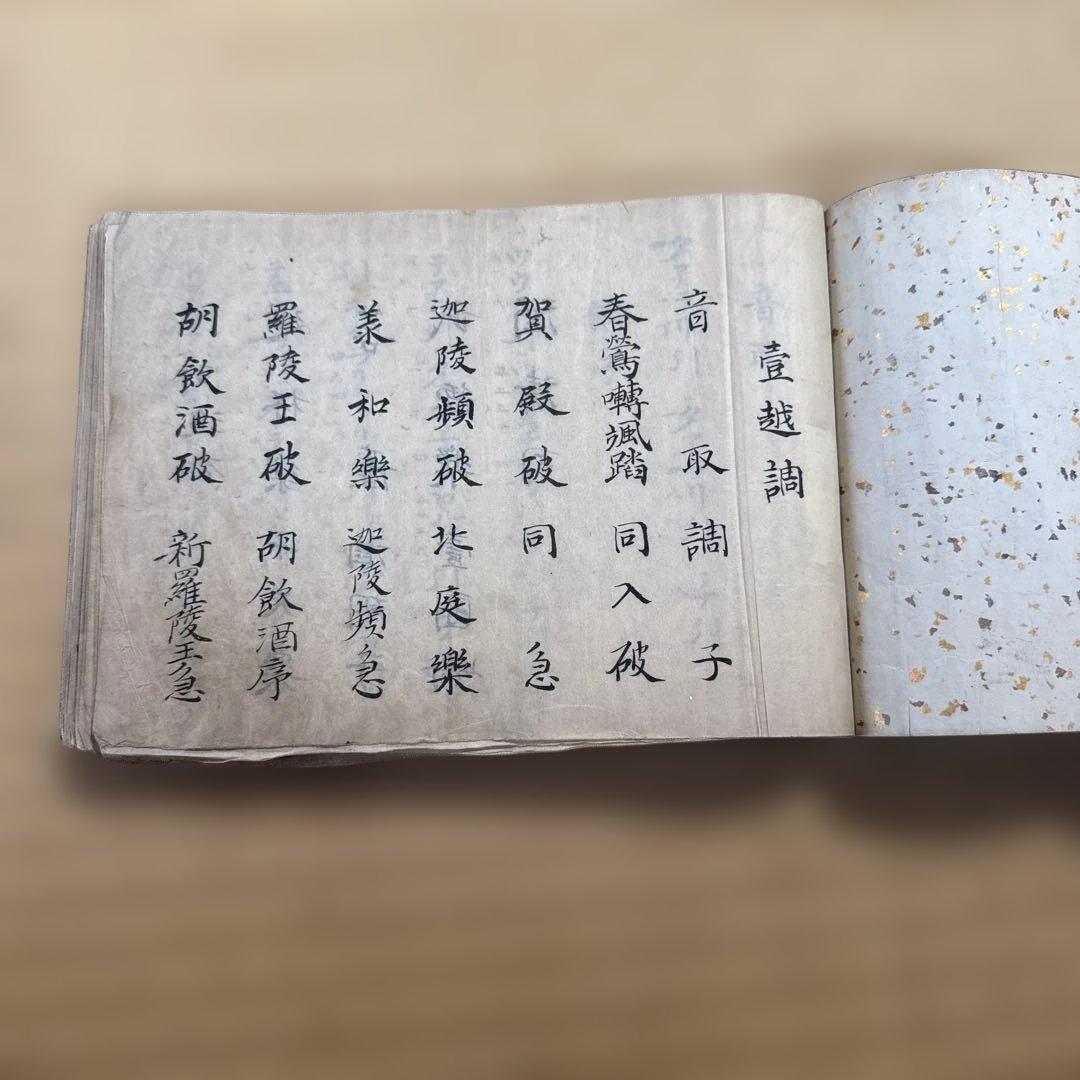 壹越調
音取調子
春鶯囀颯踏 同入破
賀殿破 同急
迦陵頻破 北庭樂
羙和樂 迦陵頻急
羅陵王破 胡飲酒序
胡飲酒破 新羅陵王急